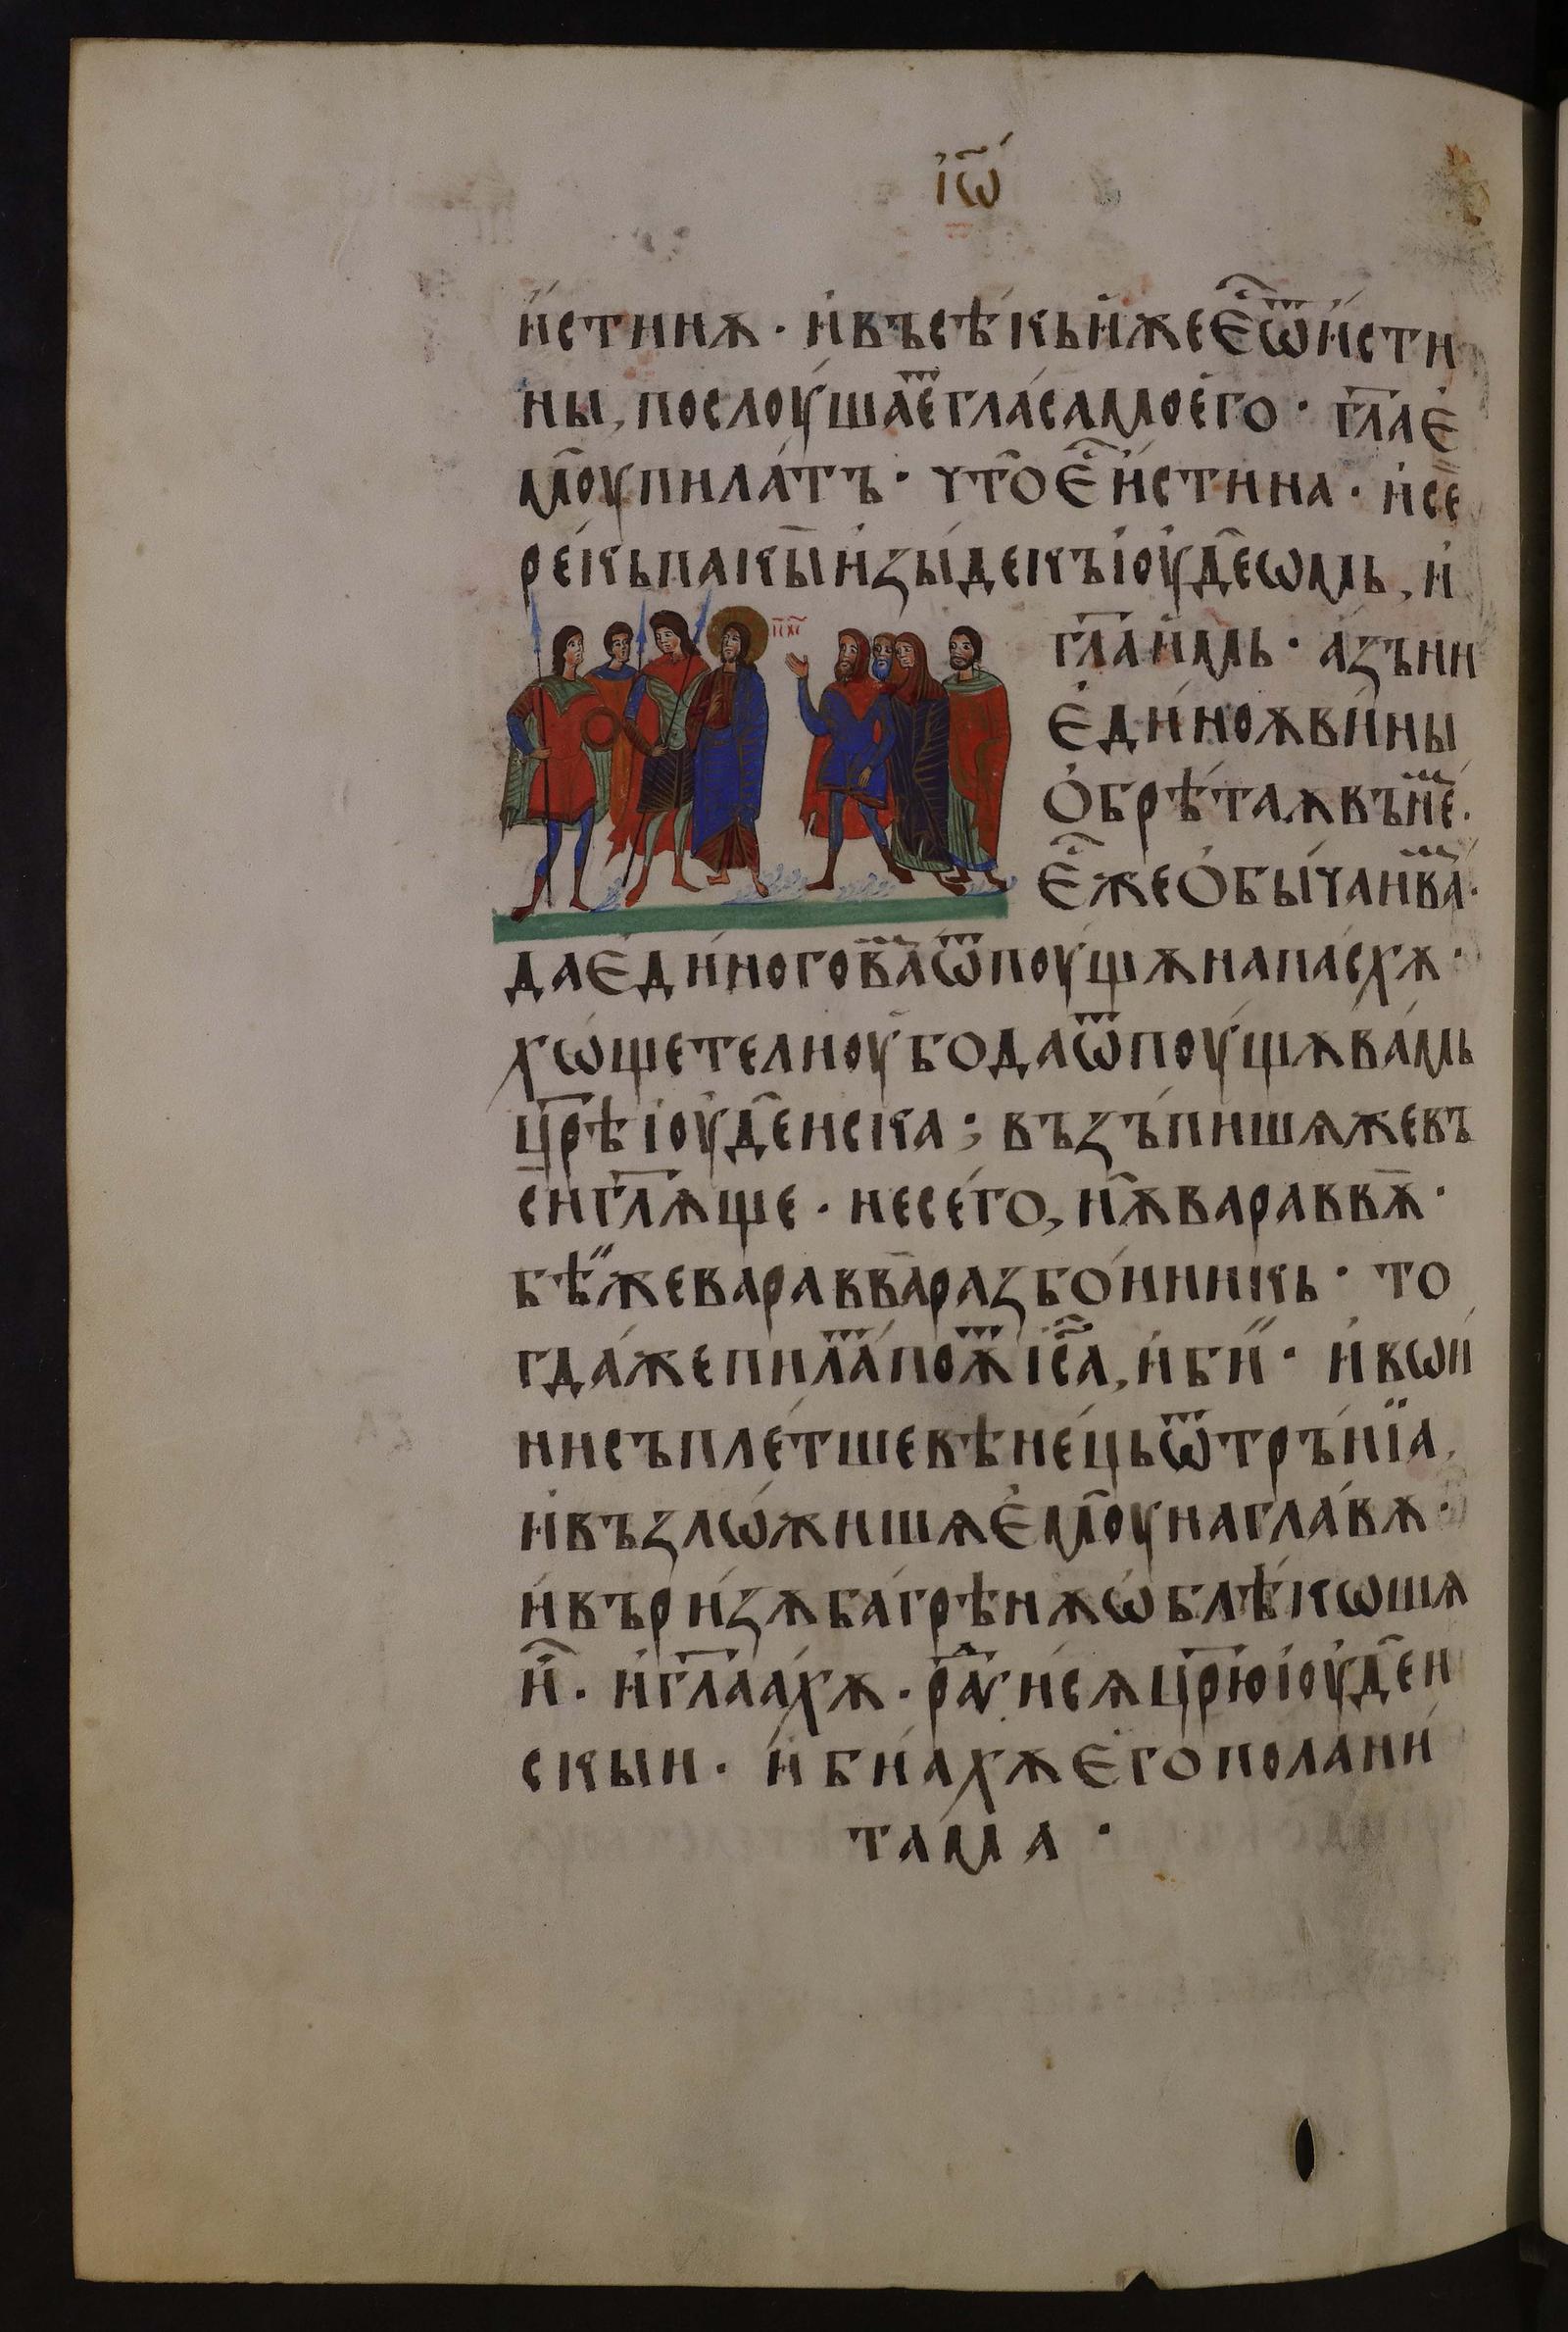 і҆ѡ҃
и҆́стинѫ · и҆ въсѣ́кьи҆ же є҆҃ ѿ и҆́сти
ны, послоу́шае гла́са моего̀ · гл҃а є҆
моу пила́тъ · что̀ є҆҃ и҆́стина · и҆ се
ре́кь пакы̀ и҆зы́де къ і҆оуде́ѡмь, и҆
гл҃а и҆̀мь · а҆́зъ ни
є҆ди́ноѫ вины̀
ѡ҆брѣ́таѫ въ не ·
є҆҃ же ѡ҆бы́чаи ва ·
да є҆ди́ного ва ѿпоу́щѫ на па́схѫ ·
хѡ́щете ли оу҆бо да ѿпоу́щѫ ва́мь
цр҃ѣ і҆оуде́иска ; възъпишѧ же въ
си гл҃ѧще · не сего̀, нѫ̀ вараввѫ̀ ·
бѣ̏ же варавва̀ разбо́иникь · то
гда́ же пила поѫ і҆с҃а, и҆ би̏ · и҆ вѡи́
ни съпле́тше вѣне́ць ѿ тръ́нїа,
и҆ възлѡ́жишѧ є҆моу̀ на гла́вѫ ·
и҆ въ ри́зѫ ба́грѣнѫ ѡ҆блѣ́кѡшѧ
и҆̀ · и҆ гл҃аахѫ · ра́уисѧ цр҃ю і҆оуде́и
скыи · и҆ би́ахѫ є҆го̀ полани́
тама ·
і҃с х҃с